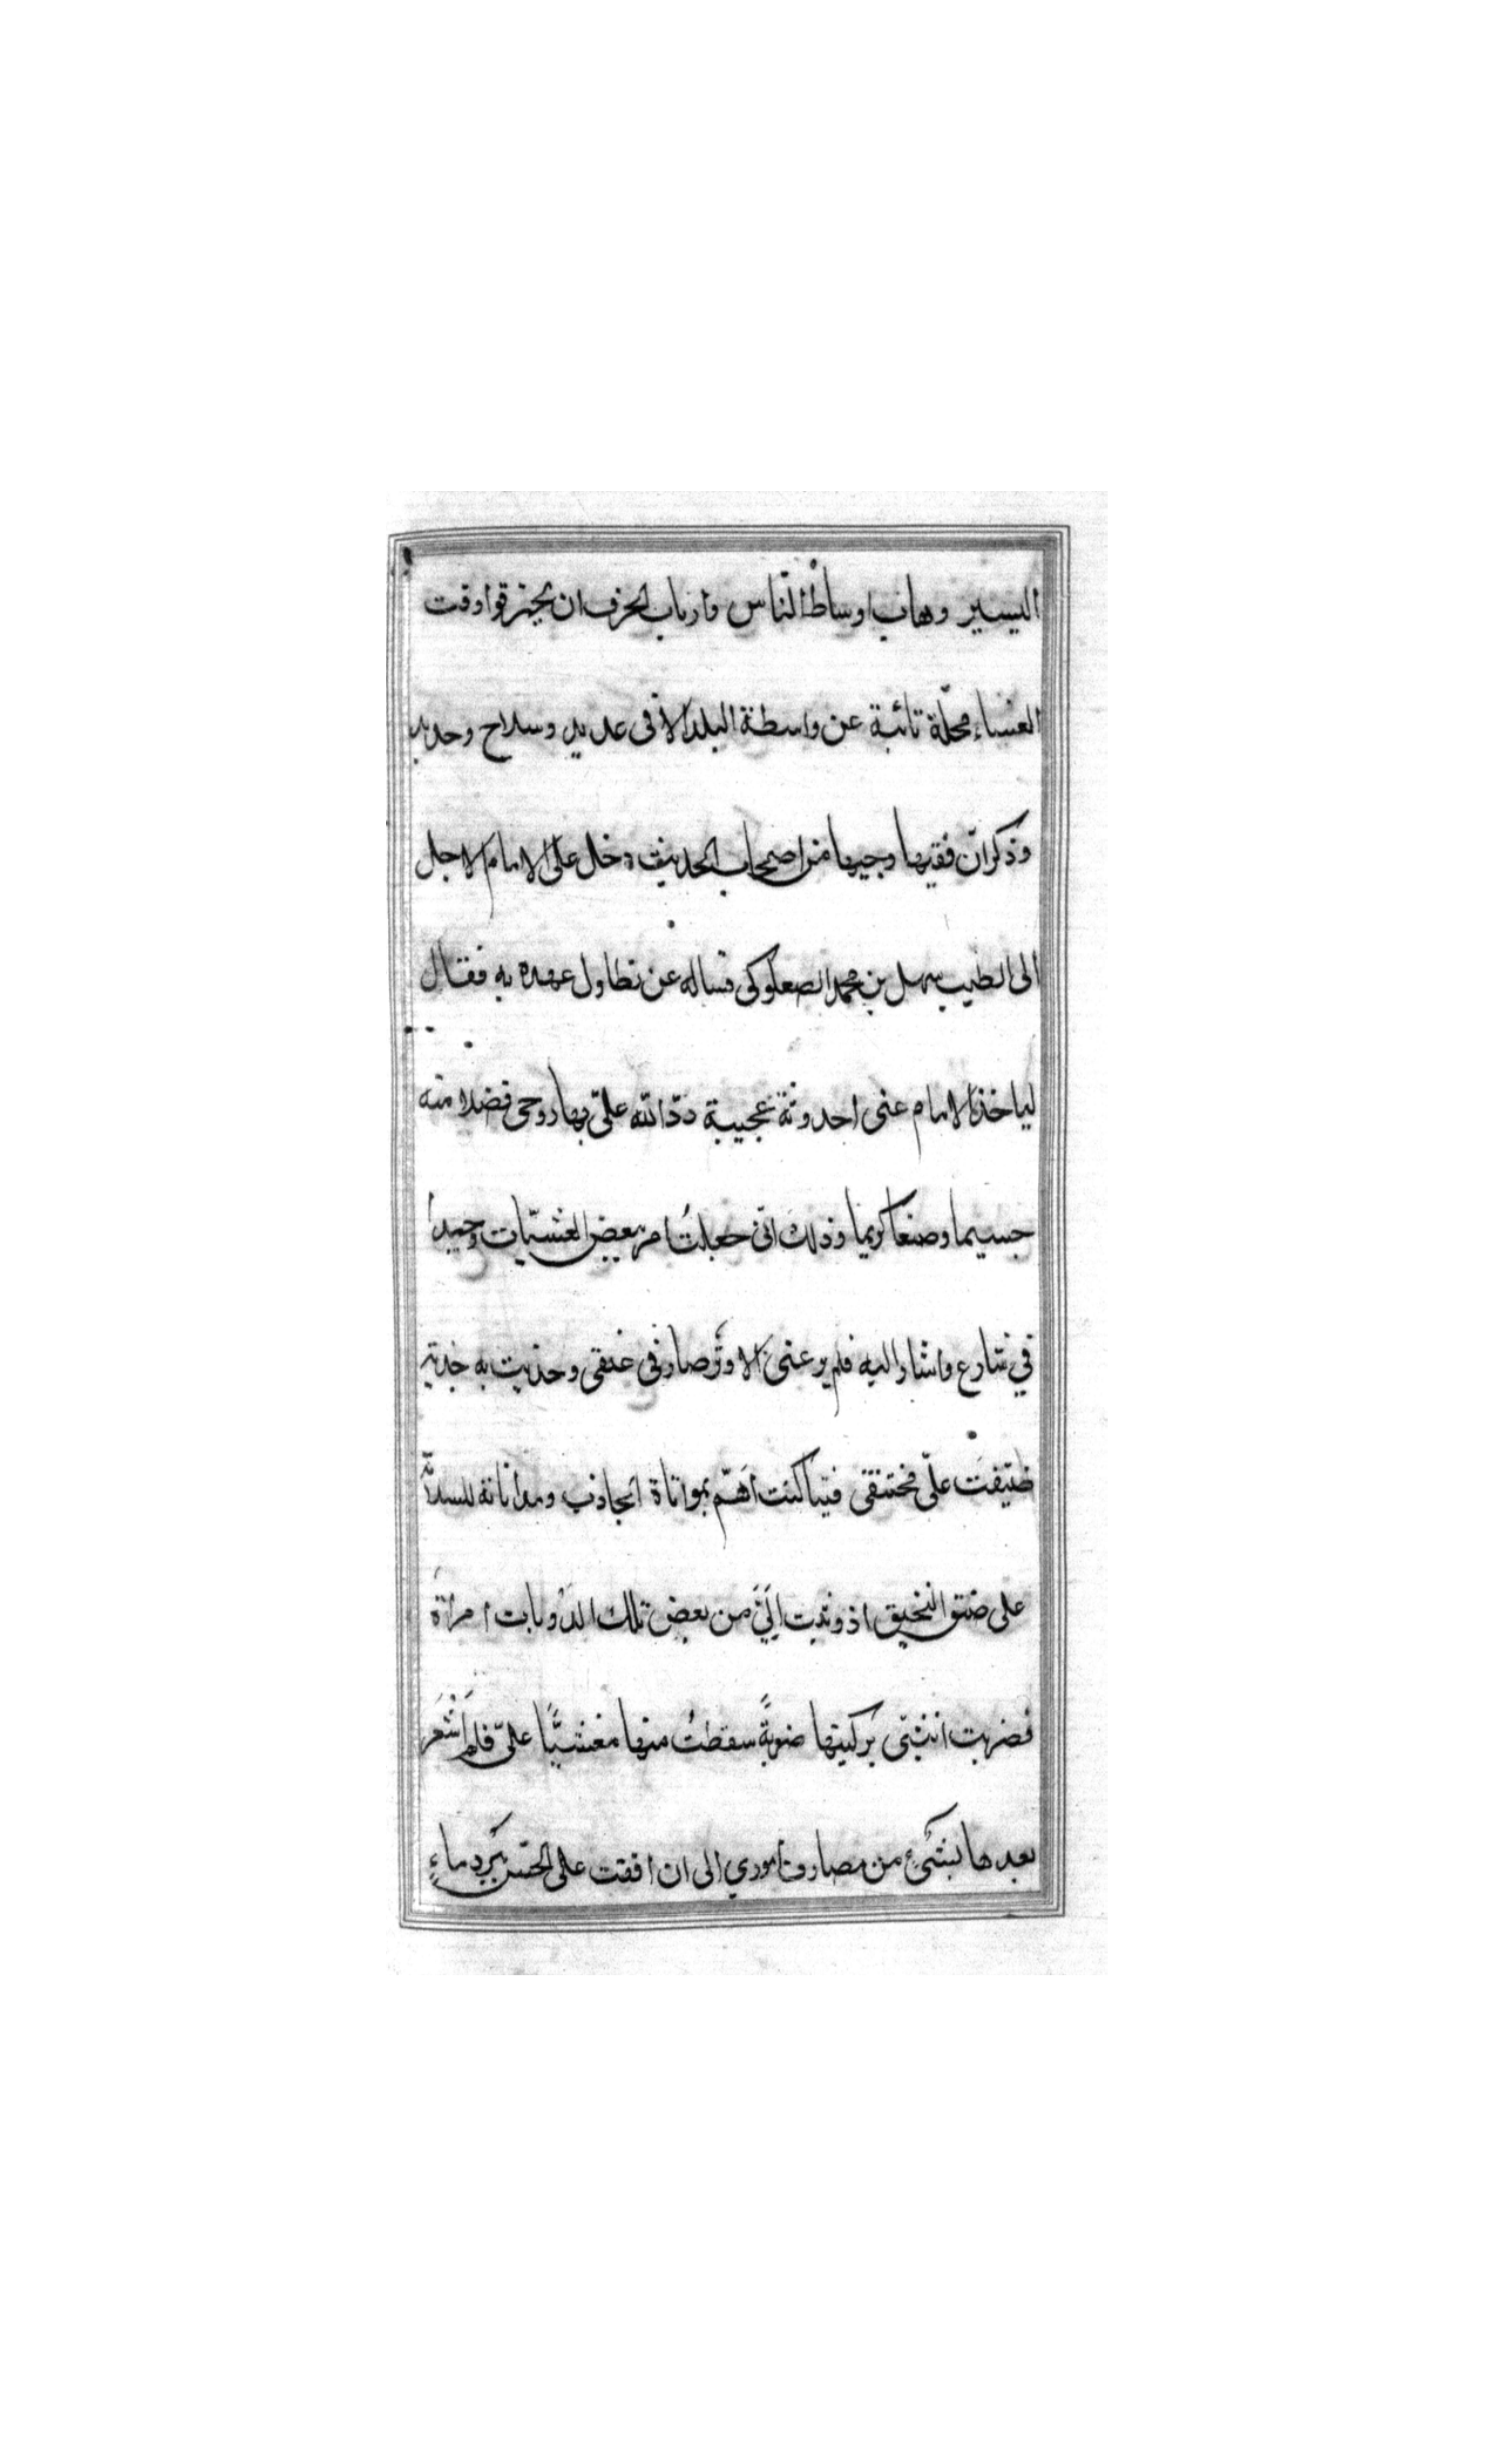 اليسير وهاب اوساط النّاس وارباب الحرف ان يخترقوا وقت
العشاء محلّة نائية عن واسطة البلد الا فى عديد وسلاح وحديد
وذكر انّ فقيها وجيها من اصحاب الحديث دخل على الامام الاجل
ابى الطيب سهل بن محمد الصعلوكى فساله عن تطاول عهده به فقال
لياخذ الامام عنى احدوثة عجيبة ردّ الله علىّ بها روحى فضلا منه
جسيما وصنعا كريما وذلك انى جعلتُ امر بعض العشيّات وحيداً
في شارع واشار اليه فلم يرعنى الا وتر صار فى عنقى وجذبت به جذبة
ضيّقت علىّ مختنقى فبينا كنت اهمّ بمواتاة الجاذب ومداناته
على ضيق الخنيق اذ وثبت الىّ من بعض تلك الدويات امراة
فضربت انثيى بركبتها ضربةً سقطتُ منها مغشيًّا علىّ فلم اشعر
بعدها بشئ من مصارف امورى الى ان افقت على الحسّ ببرد ماءٍ